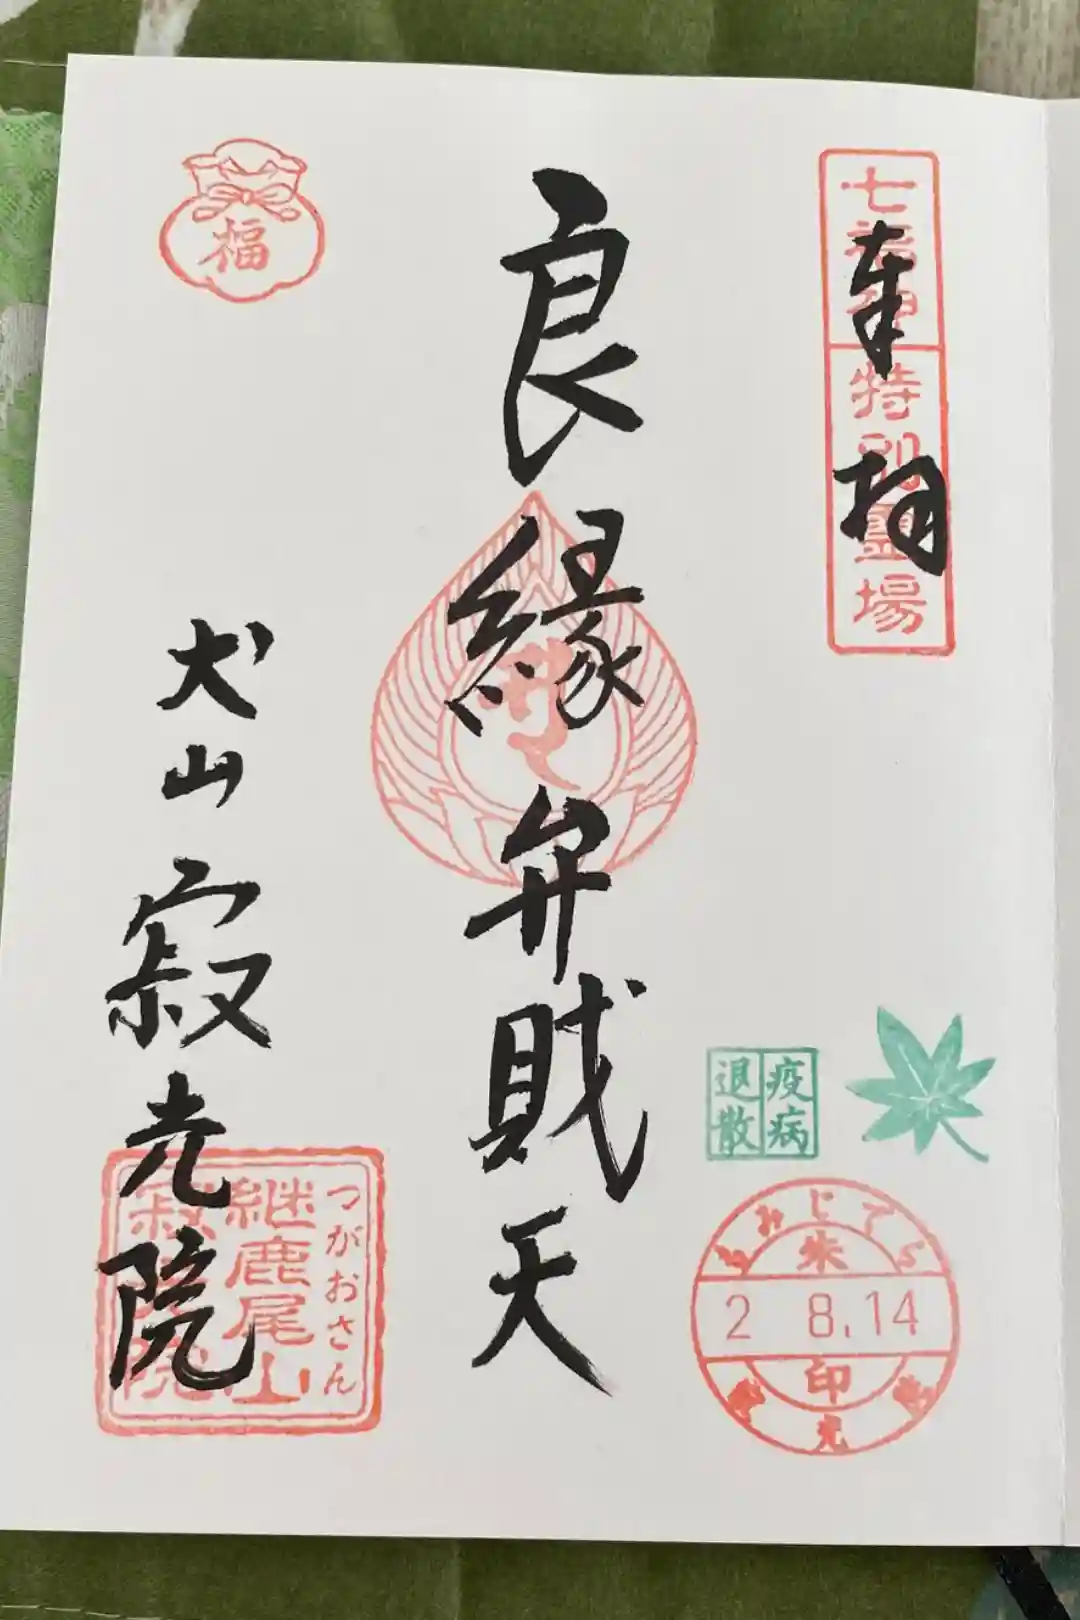 七福神特別霊場
奉拝
良縁弁財天
福
犬山寂光院
つがおさん
継鹿尾山
寂光院
疫病
退散
もみじでら
朱
2 8.14
印
寂光院